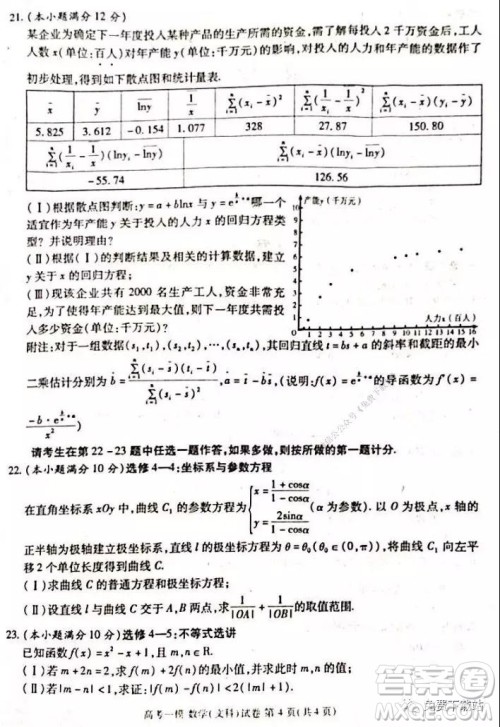 21.(本小题满分12分)
某企业为确定下一年度投入某种产品的生产所需的资金,需了解每投入2千万资金后,工人
人数x(单位:百人)对年产能y(单位:千万元)的影响,对投入的人力和年产能的数据作了
初步处理,得到如下散点图和统计量表.
x̄ ȳ \overline{lny} \overline{\frac{1}{x}} \sum_{i=1}^{n}(x_i-x̄)^2 \sum_{i=1}^{n}(\frac{1}{x_i}-\overline{\frac{1}{x}})^2 \sum_{i=1}^{n}(x_i-x̄)(y_i-ȳ)
5.825 3.612 -0.154 1.077 328 27.87 150.80
\sum_{i=1}^{n}(\frac{1}{x_i}-\overline{\frac{1}{x}})(lny_i-\overline{lny}) \sum_{i=1}^{n}(x_i-x̄)(lny_i-\overline{lny})
-55.74 126.56
(Ⅰ)根据散点图判断:y=a+blnx与y=e^{\frac{b}{x}+a}哪一个
适宜作为年产能y关于投入的人力x的回归方程
类型?并说明理由?
(Ⅱ)根据(Ⅰ)的判断结果及相关的计算数据,建立
y关于x的回归方程;
(Ⅲ)现该企业共有2000名生产工人,资金非常充
足,为了使得年产能达到最大值,则下一年度共需投
入多少资金(单位:千万元)?
产能y(千万元)
7
6
5
4
3
2
1
人力x(百人)
1 2 3 4 5 6 7 8 9 10 11 12 13 14 15 16
附注:对于一组数据(s_1,t_1),(s_2,t_2),…,(s_n,t_n),其回归直线t=bs+a的斜率和截距的最小
二乘估计分别为b̂=\frac{\sum_{i=1}^{n}(s_i-s̄)(t_i-t̄)}{\sum_{i=1}^{n}(s_i-s̄)^2},â=t̄-b̂s̄,(说明:f(x)=e^{\frac{b}{x}+a}的导函数为f'(x)=
\frac{-b·e^{\frac{b}{x}+a}}{x^2})
请考生在第22-23题中任选一题作答,如果多做,则按所做的第一题计分.
22.(本小题满分10分)选修4—4:坐标系与参数方程
在直角坐标系xOy中,曲线C_1的参数方程为{x=\frac{1+cosα}{1-cosα}, y=\frac{2sinα}{1-cosα}(α为参数).以O为极点,x轴的
正半轴为极轴建立极坐标系,直线l的极坐标方程为θ=θ_0(θ_0∈(0,π)),将曲线C_1向左平
移2个单位长度得到曲线C.
(Ⅰ)求曲线C的普通方程和极坐标方程;
(Ⅱ)设直线l与曲线C交于A,B两点,求\frac{1}{|OA|}+\frac{1}{|OB|}的取值范围.
23.(本小题满分10分)选修4—5:不等式选讲
已知函数f(x)=x^2-x+1,且m,n∈R.
(Ⅰ)若m+2n=2,求f(m)+2f(n)的最小值,并求此时m,n的值;
高考一模 数学(文科)试卷 第4页(共4页)
答案圈